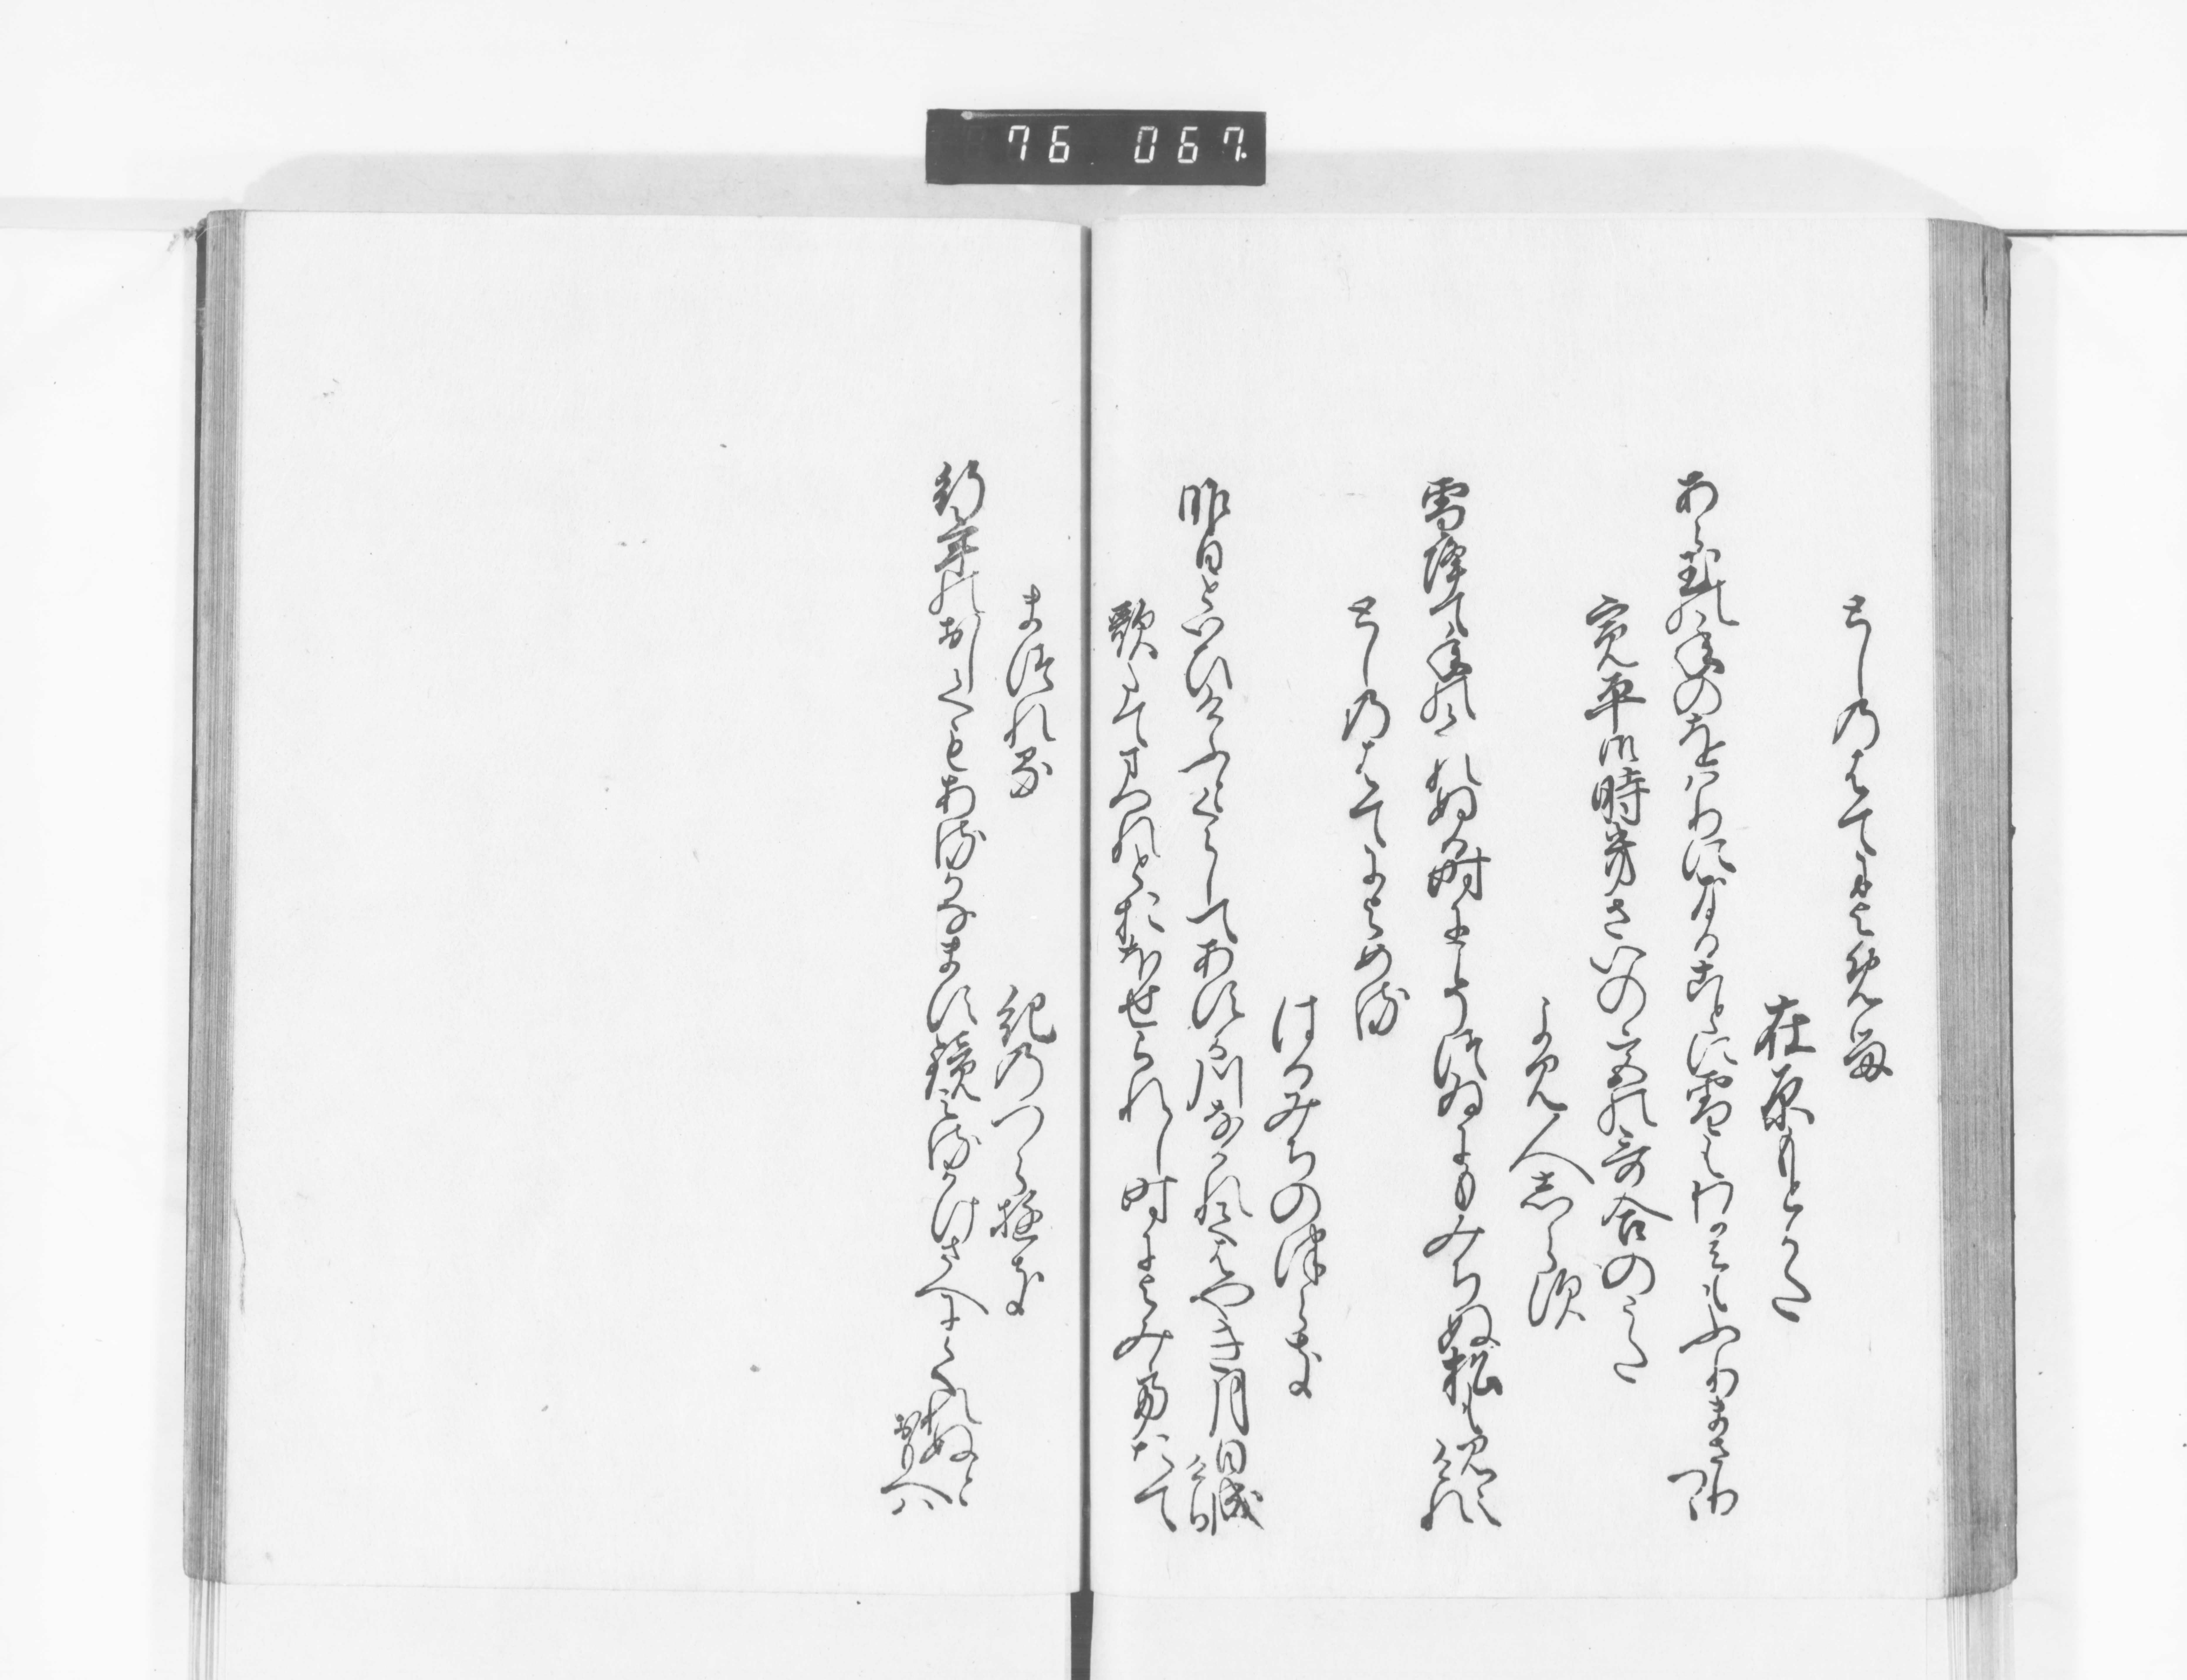 76 067.
としのはてによめる
在原もとかた
あら玉の年のをはりになることに雪もわか身もふりまさり
つゝ
寛平御時きさいの宮の哥合のうた
よみ人しらす
雪降て年のくれぬる時にこそつゐにもみちぬ松も見え
けれ
としのはてによめる
はるみちのつらき
昨日といひけふとくらしてあすか川なかれてはやき月日成
けり
歌たてまつれとおほせられし時によみてたて
まつれる
紀のつらゆき
行年のおしくもあるかなますかゝみみるかけさへにくれぬと
おもへは